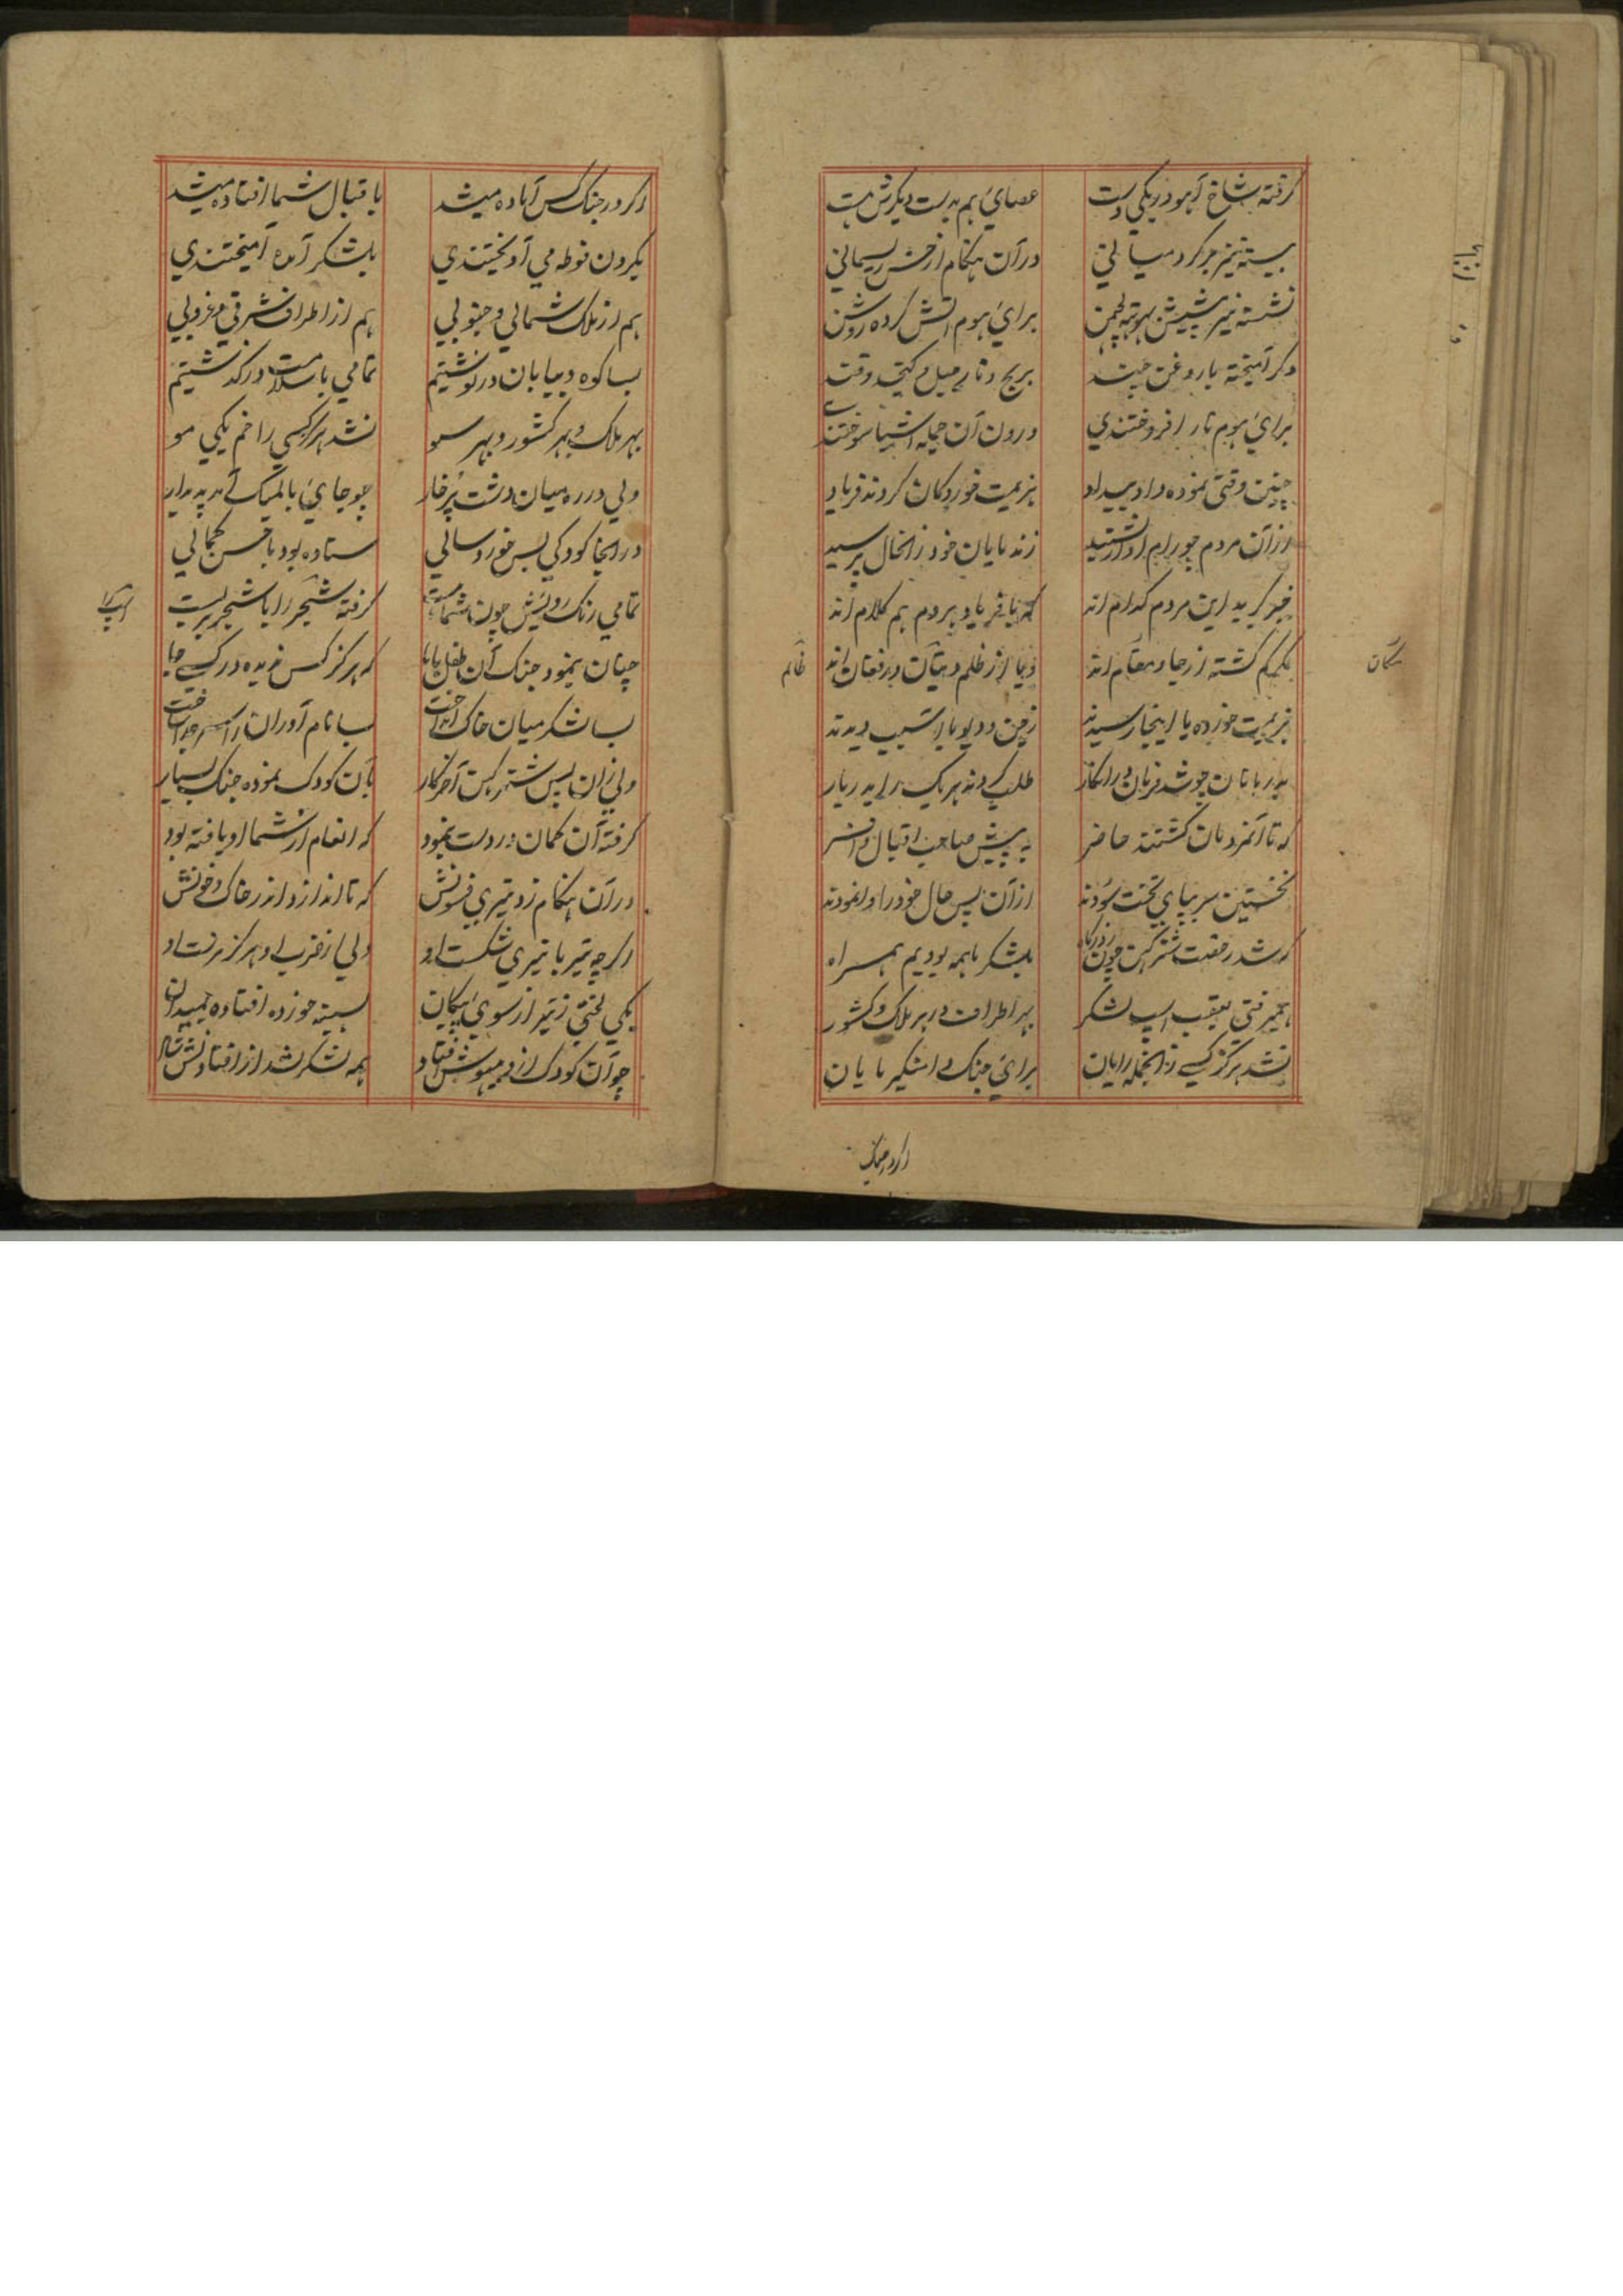 گرفته شاخ آهو در یکی دست عصای بم بدست دیگرش هست
ببسته نیز بر گرد میانی در آن هنگام از خس ریسمانی
نشسته نیز پیشش لچمن برای هوم آتش کرده روشن
دگر آمیخته با روغن برنج و
برای هوم نار افروختندی درون آن جمله اشیا سوختندی
چنین وقتی نموده داد بیداد هزیمت خوردگان کردند فریاد
از آن مردم چو رام آواز بشنید ز ندمایان خود زانحال پرسید
خبر گیرید این مردم کدام اند که با فریاد هر دم هم کلام اند
گشته از جا و مقام اند و یا از ظلم در فغان اند
هزیمت خورده یا اینجا رسیدند زجن و دیو یا آسیب دیدند
بدربانان چو شد فرمان در آنکار طلب کردند هر یک را بدربار
که تا آنمردمان گشتند حاضر به پیش صاحب اقبال و افسر
نخستین سر بپای تخت سودند از آن پس حال خود را وانمودند
که شد رخصت شترگهن چون بلشکر ما همه بودیم همراه
همیرفتی بعقب اسپ لشکر بهر اطراف در هر ملک و کشور
نشد هرگز کسی زانجمله رایان برای جنگ
سگان
ظالم
اگر در جنگ
اگر در جنگ کس آماده میشد باقبال شما افتاده میشد
بگردن فوطه می آویختندی بلشکر آمده آمیختندی
هم از ملک شمالی و جنوبی هم از اطراف شرقی و غروبی
بسا کوه و بیابان در نوشتیم تمامی با سلامت در گذشتیم
بهر ملک و بهر کشور و بهر سو نشد هرگز کسی را خم یکی مو
ولی در ره میان دشت پر خار چو جای بالمیک آمد پدیدار
در آنجا کودکی بس خورد سالی ستاده بود با حسن کمالی
تمامی رنگ رویش چون شما گرفته شجر را با شجر بر بست
چنان بنمود جنگ آن طفل با ما که هرگز کس ندیده در کسی جا
بسا لشکر میان خاک انداخت بسا نام آوران را سر جدا ساخت
ولی زان پس شترگهن آخر کار بآن کودک نموده جنگ بسیار
گرفته آن کمان در دست بنمود که انعام از شما او یافته بود
در آن هنگام زد تیری فسونش که تا اندازد اندر خاک و خونش
اگرچه تیر با تیری شکست او ولی از ضرب او هرگز نرست او
یکی لختی ز تیر از سوی پیکان بسینه خورده افتاده بمیدان
چو آن کودک از و بیهوش افتاد همه لشکر شد از افتادنش شاد